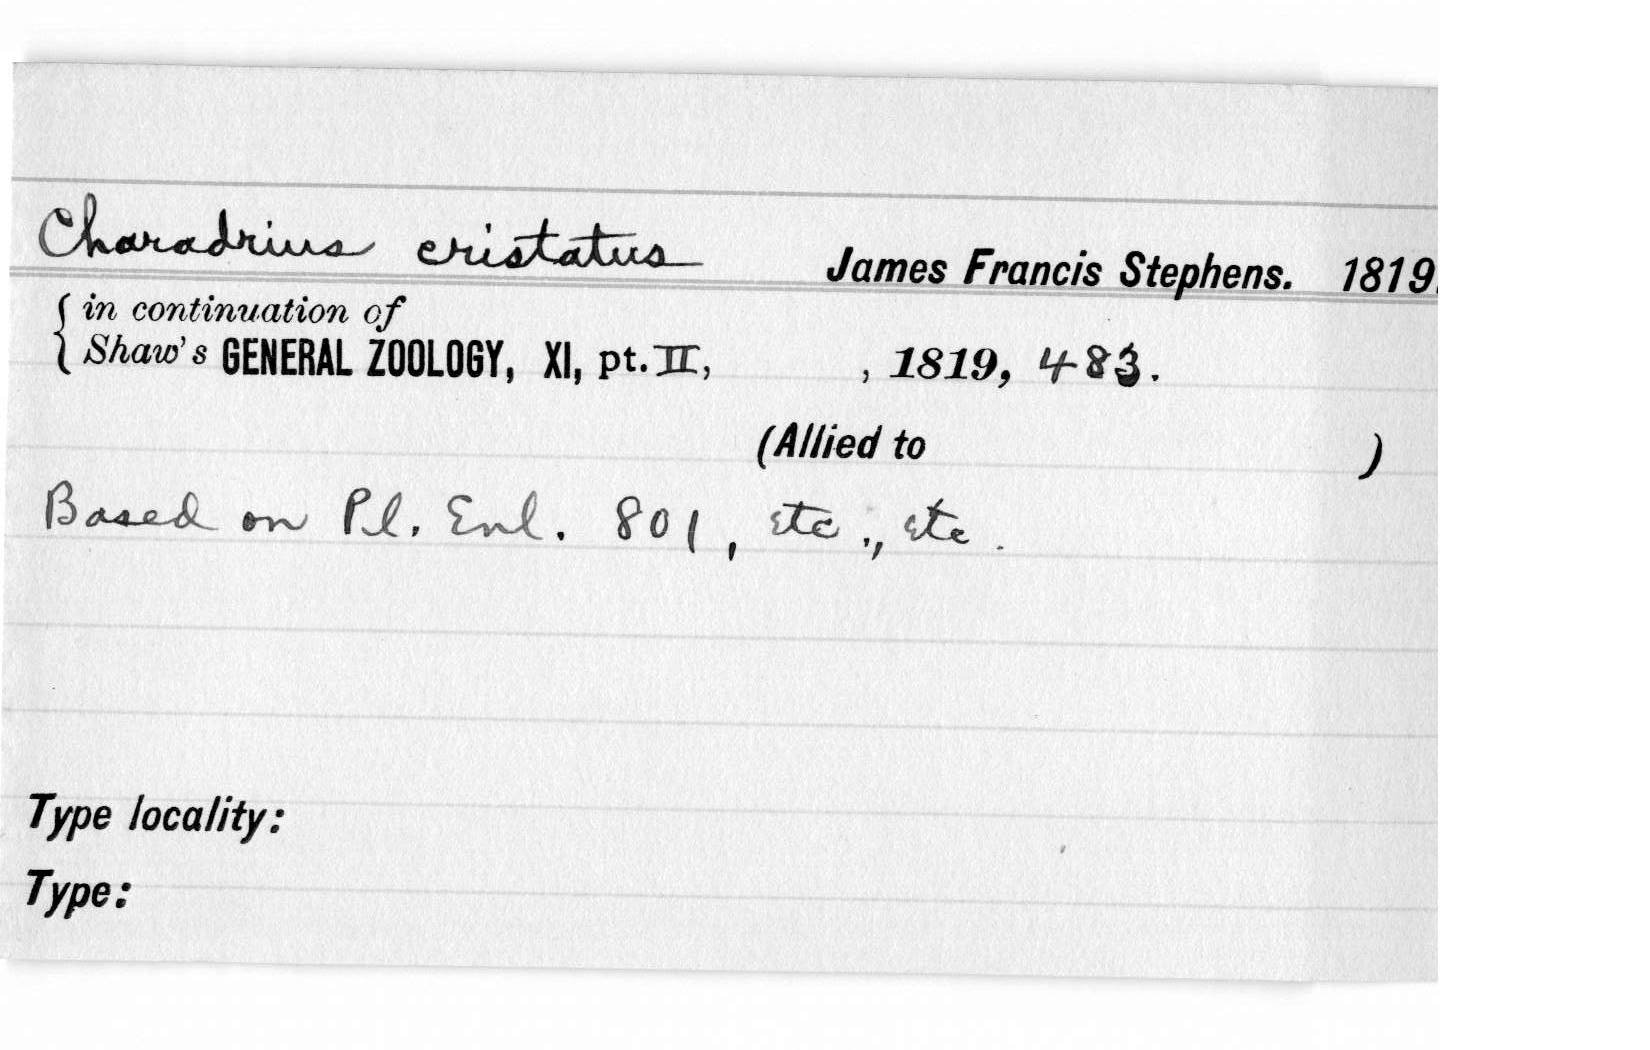 Charadrius cristatus James Francis Stephens. 1819.
{ in continuation of
Shaw's GENERAL ZOOLOGY, XI, pt. II, , 1819, 483.
(Allied to )
Based on Pl. Enl. 801, etc., etc.
Type locality:
Type: